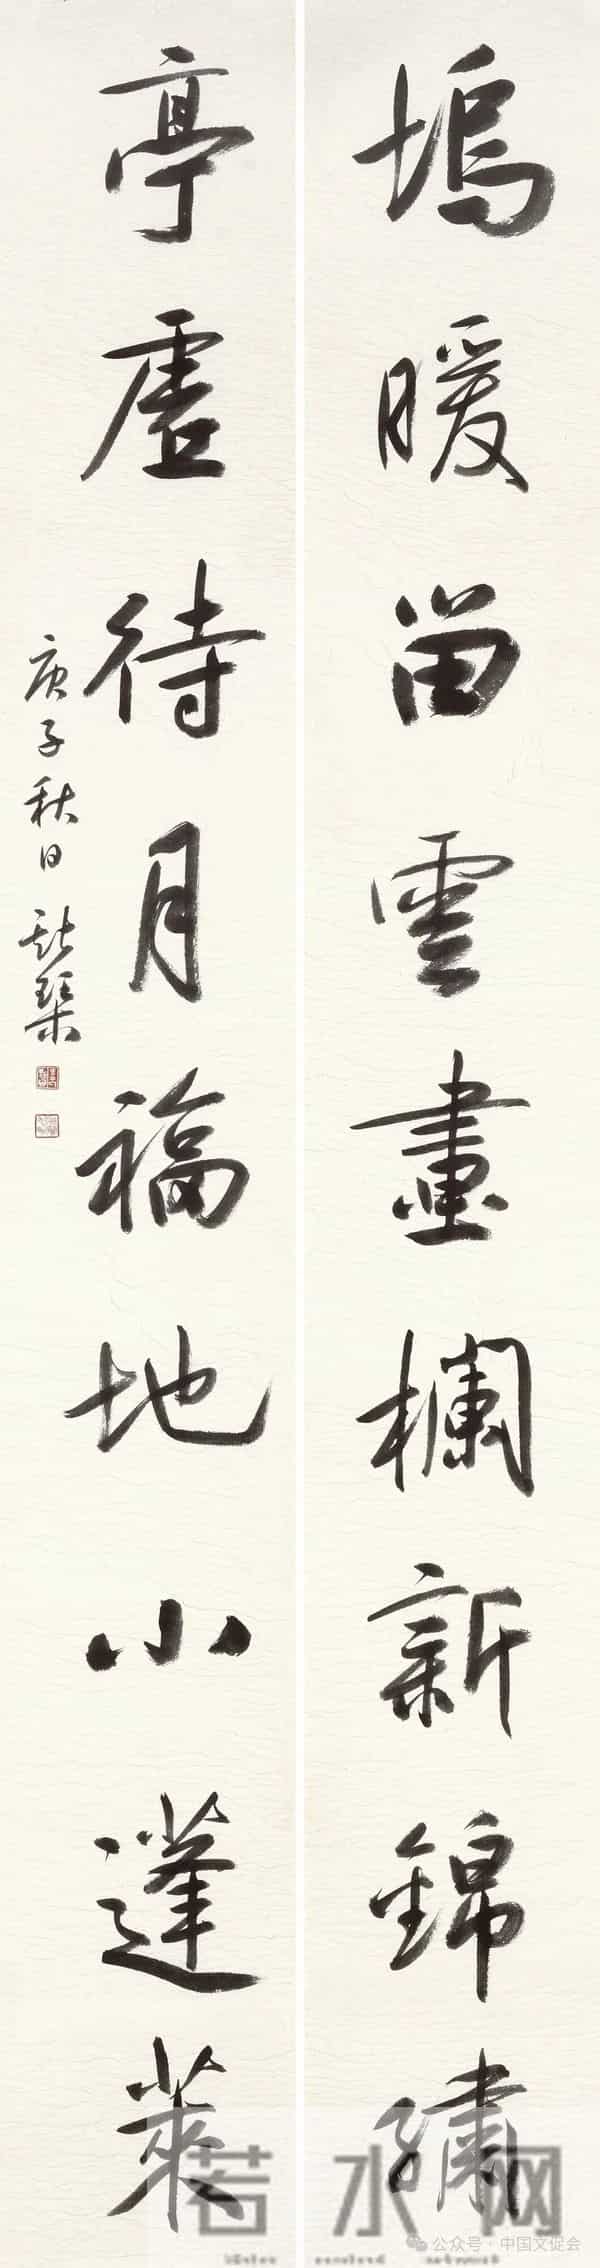 塢暖留雲畫欄新錦繡
亭虛待月福地小蓬萊
庚子秋日
若水网
公众号·中国文促会